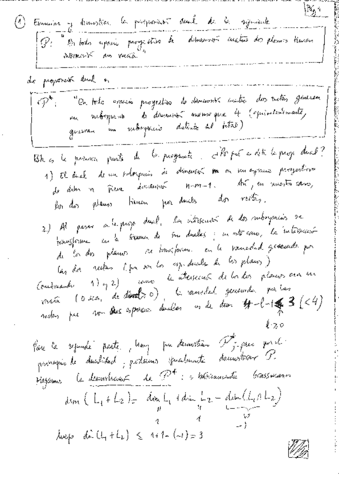 Pág 1
① Enunciar y demostrar la proposición dual de la siguiente
P: "En todo espacio proyectivo de dimensión cuatro dos planos tienen
intersección no vacía"
La proposición dual es
P*: "En todo espacio proyectivo de dimensión cuatro dos rectas generan
un subespacio de dimensión menor que 4 (equivalentemente,
generan un subespacio distinto del total)"
Esta es la primera parte de la pregunta. ¿Por qué es ésta la prop. dual?
1) El dual de un subespacio de dimensión m en un espacio proyectivo
de dim n tiene dimensión n-m-1. Así, en nuestro caso,
dos planos tienen por duales dos rectas.
2) Al pasar a la prop. dual, la intersección de dos subespacios se
transforma en la suma de sus duales: en este caso, la intersección
de los dos planos se transforma en la variedad generada por
las dos rectas (que son los esp. duales de los planos)
Combinando 1) y 2) como la intersección de los dos planos era no
vacía (o sea, de dim l ≥ 0), la variedad generada por las
rectas que son espacios duales es de dim 4-l-1 ≤ 3 (<4)
l≥0
Para la segunda parte, hay que demostrar P*; pero por el
principio de dualidad, podemos igualmente demostrar P.
Hagamos la demostración de P*: básicamente Grassmann
dim (L₁+L₂) = dim L₁ + dim L₂ - dim (L₁∩L₂)
1 1 -1
luego dim (L₁+L₂) ≤ 1+1-(-1) = 3